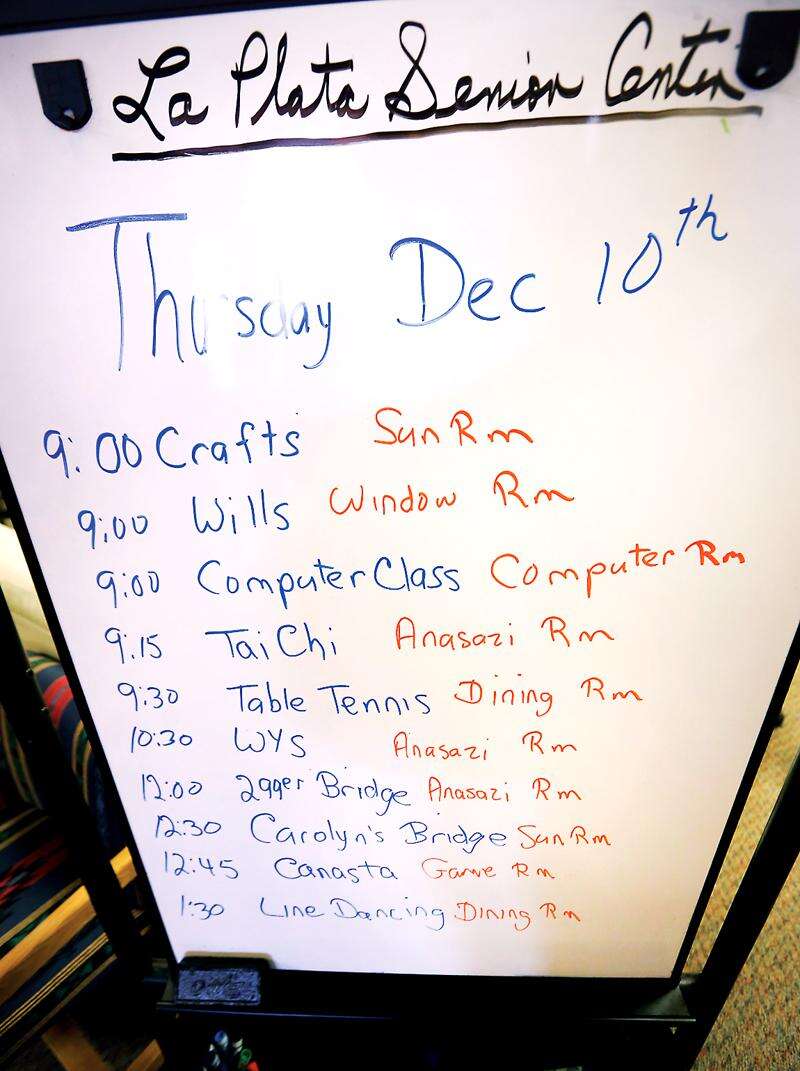 La Plata Senior Center
Thursday Dec 10th
9:00 Crafts Sun Rm
9:00 Wills Window Rm
9:00 Computer Class Computer Rm
9:15 Tai Chi Anasazi Rm
9:30 Table Tennis Dining Rm
10:30 WYS Anasazi Rm
12:00 299er Bridge Anasazi Rm
12:30 Carolyn's Bridge Sun Rm
12:45 Canasta Game Rm
1:30 Line Dancing Dining Rm